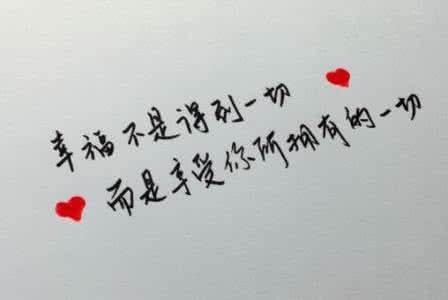 幸福不是得到一切
而是享受你所拥有的一切